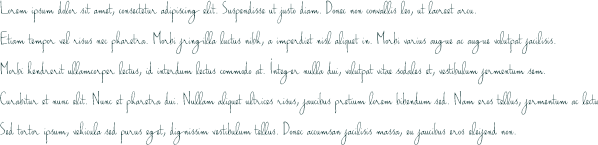 Lorem ipsum dolor sit amet, consectetur adipiscing elit. Suspendisse ut justo diam. Donec non convallis leo, ut laoreet arcu.
Etiam tempor vel risus nec pharetra. Morbi fringilla luctus nibh, a imperdiet nisl aliquet in. Morbi varius augue ac augue volutpat facilisis.
Morbi hendrerit ullamcorper lectus, id interdum lectus commodo at. Integer nulla dui, volutpat vitae sodales et, vestibulum fermentum sem.
Curabitur et nunc elit. Nunc et pharetra dui. Nullam aliquet ultrices risus, faucibus pretium lorem bibendum sed. Nam eros tellus, fermentum ac lectu
Sed tortor ipsum, vehicula sed purus eget, dignissim vestibulum tellus. Donec accumsan facilisis massa, eu faucibus eros eleifend non.